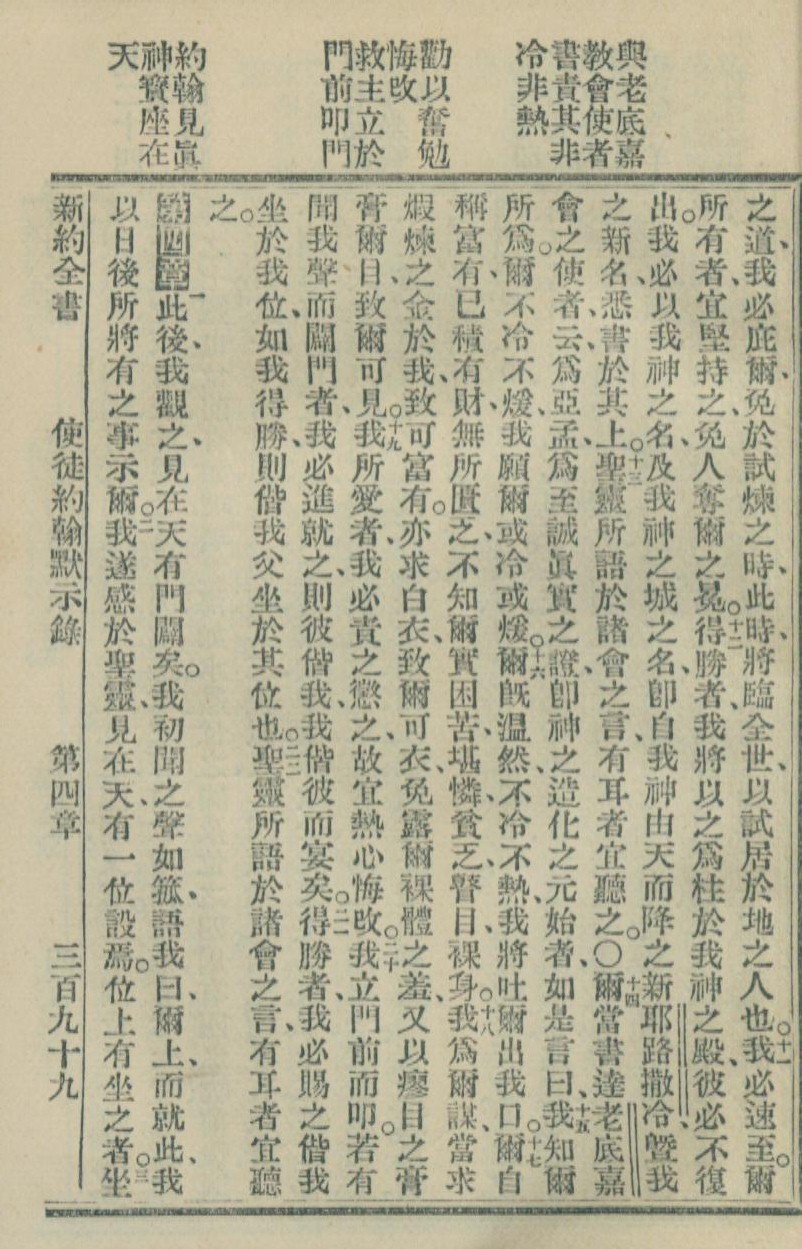 與老底嘉
教會使者
書責其非
冷非熱
勸以奮勉
悔改
救主立於
門前叩門
約翰見眞
神寶座在
天
之道、我必庇爾、免於試煉之時、此時、將臨全世、以試居於地之人也。十一我必速至。爾
所有者、宜堅持之、免人奪爾之冕。十二得勝者、我將以之爲柱於我神之殿、彼必不復
出。我必以我神之名、及我神之城之名、卽自我神由天而降之新耶路撒冷、暨我
之新名、悉書於其上。十三聖靈所語於諸會之言、有耳者宜聽之。〇十四爾當書達老底嘉
會之使者、云、爲亞孟、爲至誠眞實之證、卽神之造化之元始者、如是言曰、十五我知爾
所爲。爾不冷不煖、我願爾或冷或煖。十六爾旣温然、不冷不熱、我將吐爾出我口。十七爾自
稱富有、已積有財、無所匱乏、不知爾實困苦、堪憐、貧乏、瞽目、裸身。十八我爲爾謀、當求
煆煉之金於我、致可富有。亦求白衣、致爾可衣、免露爾裸體之羞、又以瘳目之膏
膏爾目、致爾可見。十九我所愛者、我必責之懲之、故宜熱心悔改。二十我立門前而叩。若有
聞我聲而闢門者、我必進就之、則彼偕我、我偕彼而宴矣。二一得勝者、我必賜之偕我
坐於我位、如我得勝、則偕我父坐於其位也。二二聖靈所語於諸會之言、有耳者宜聽
之。
第四章一此後、我觀之、見在天有門闢矣。我初聞之聲如箛、語我曰、爾上、而就此、我
以日後所將有之事示爾。二我遂感於聖靈、見在天、有一位設焉。位上有坐之者。三坐
新約全書　使徒約翰默示錄　第四章　三百九十九